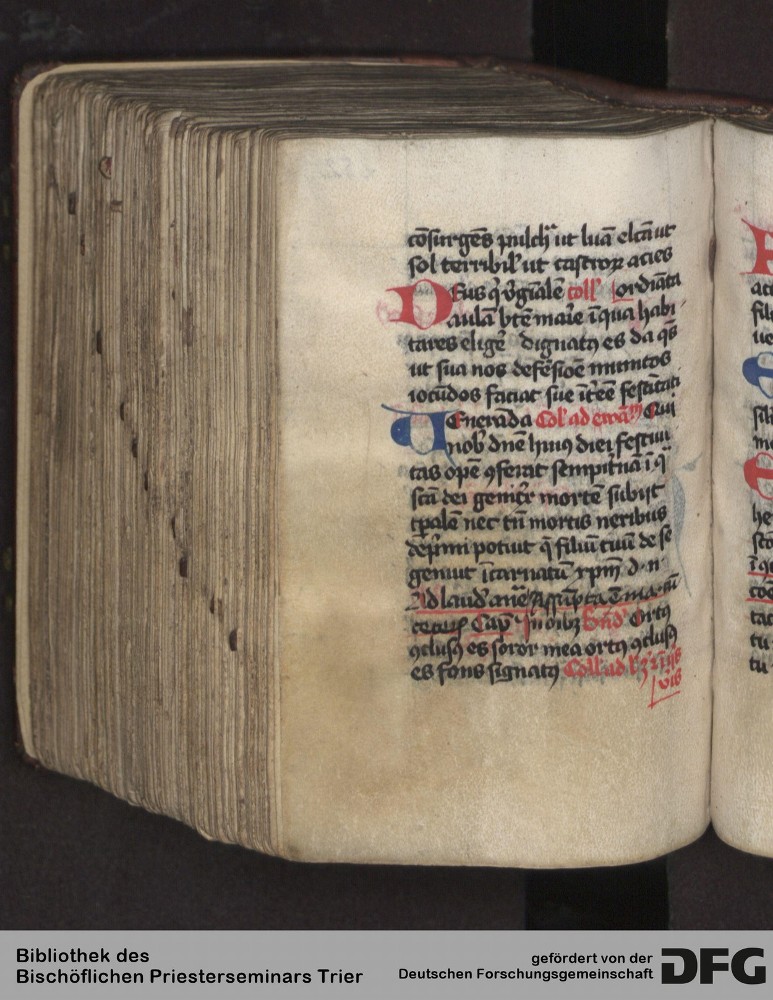 cōsurgēs pulchͬ ut luā elcā ut
sol terribil' ut castroꝝ acies
Deus q' v'gīalē coll' ordīata
aulā btē marie īqua habi
tares elige᷑ dignatꝰ es da qs̄
ut sua nos defēsiōe munitos
iocūdos faciat sue īt'ēē festiuitati
Uenerāda Col' ad
nob' dnē huiꝰ diei festiui
tas opē ꝯferat sempit'nā ī q'
scā dei genit'x mortē subijt
tp̄alē nec tn̄ mortis nexibus
dep'mi potuit q̄ filiū tuū de se
genuit īcarnatū xp̄m d · n
Ad laud' añe Assūpta ē ma. cū
Cap' Jn oībꝫ Bñd' Ortꝰ
ꝯclusꝰ es soror mea ortꝰ ꝯclusꝰ
es fons signatꝰ Coll' ad
Bibliothek des
Bischöflichen Priesterseminars Trier
gefördert von der
Deutschen Forschungsgemeinschaft
DFG